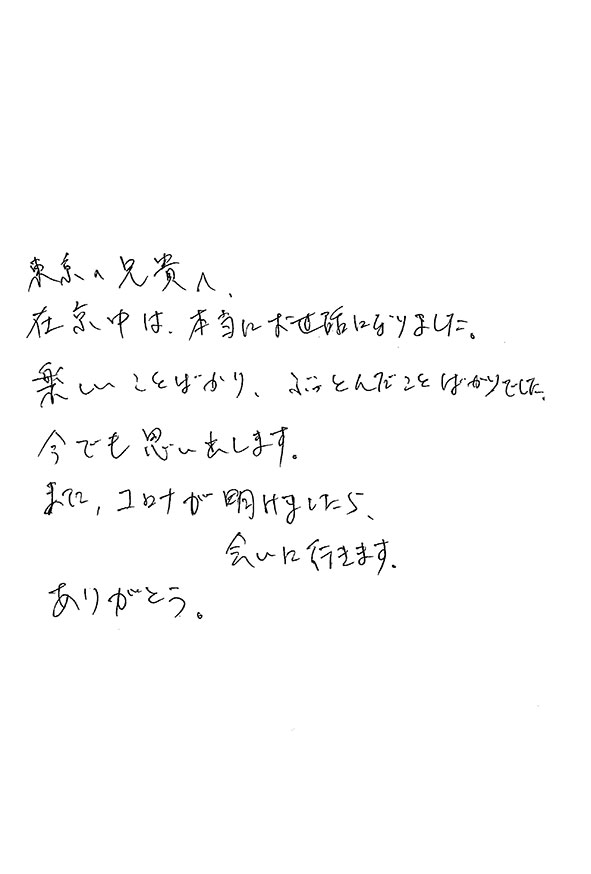 東京の兄貴へ、
在京中は、本当にお世話になりました。
楽しいことばかり、ぶっとんだことばかりでした。
今でも思い出します。
また、コロナが明けましたら、
会いに行きます。
ありがとう。